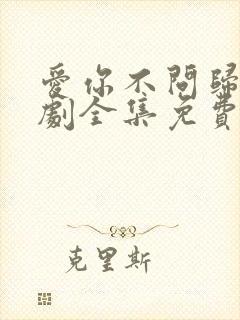 愛你不問歸
劇全集免費
克里斯